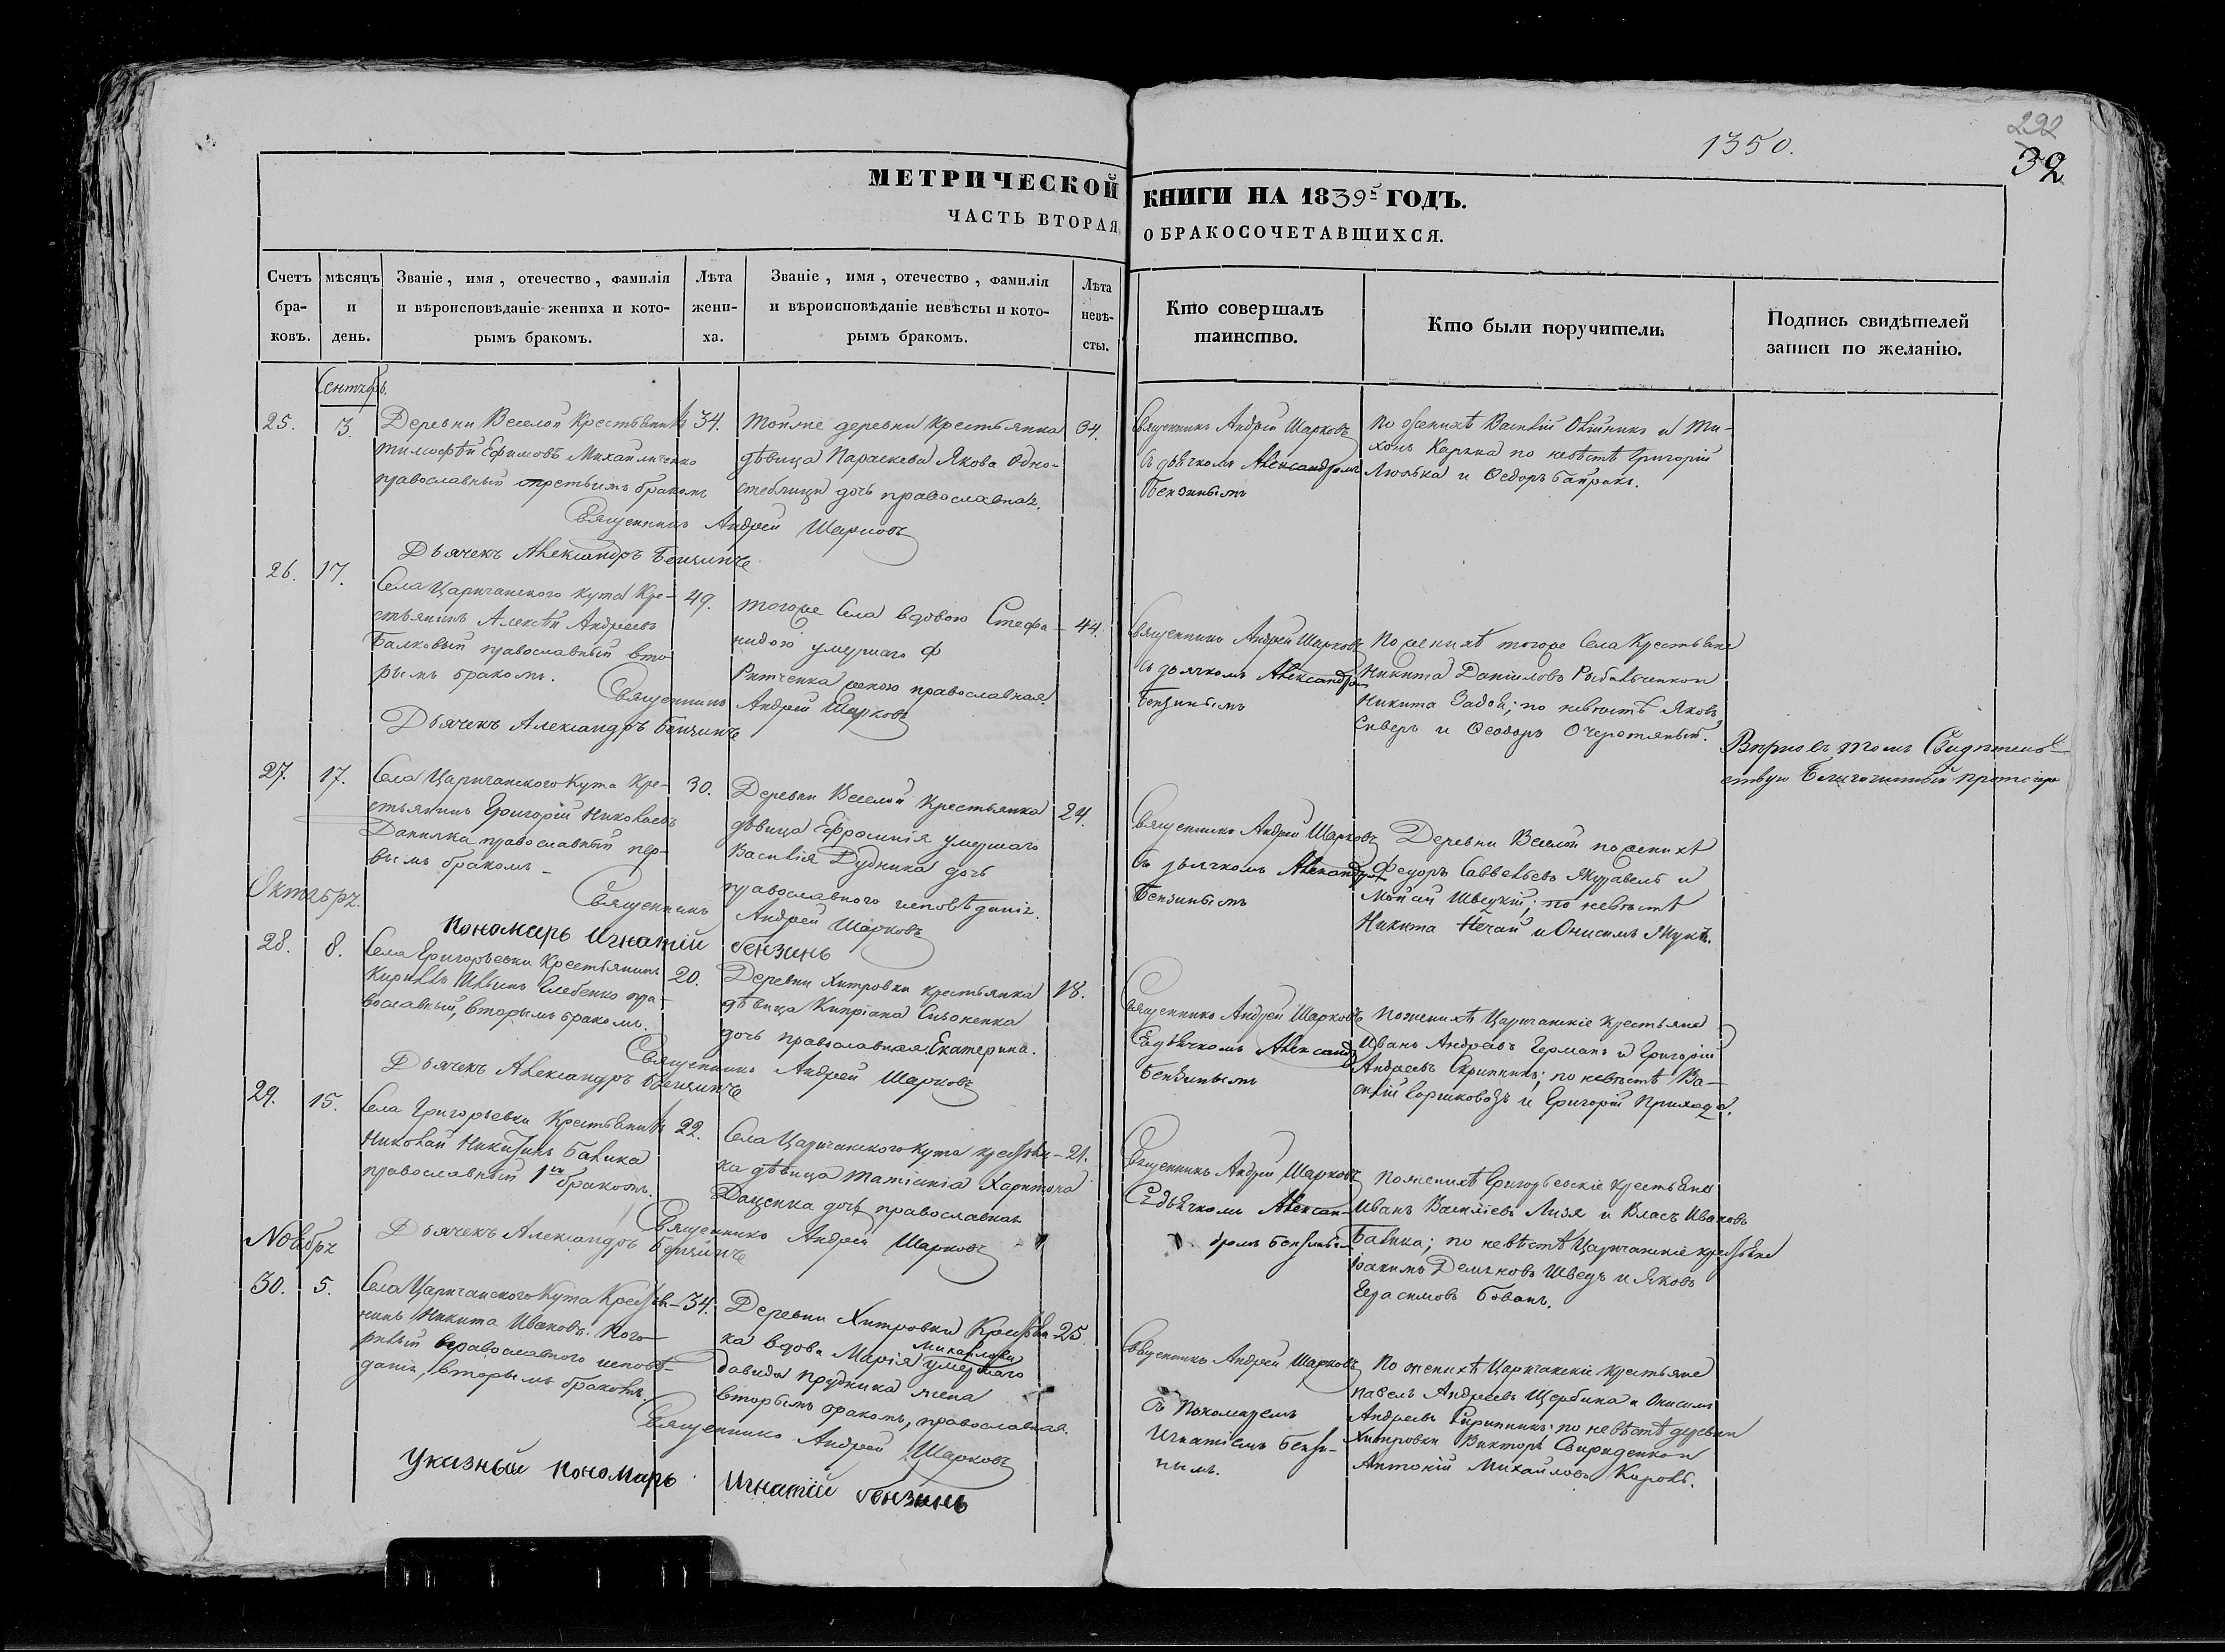 1350.
292
32
МЕТРИЧЕСКОЙ КНИГИ НА 1839й ГОДЪ.
ЧАСТЬ ВТОРАЯ О БРАКОСОЧЕТАВШИХСЯ.
Счетъ бра-ковъ.
мѣсяцъ и день.
Званіе, имя, отечество, фамилія
и вѣроисповѣданіе жениха и кото-
рымъ бракомъ.
Лѣта жени-ха.
Званіе, имя, отечество, фамилія
и вѣроисповѣданіе невѣсты и кото-
рымъ бракомъ.
Лѣта невѣ-сты.
Кто совершалъ
таинство.
Кто были поручители.
Подпись свидѣтелей
записи по желанію.
Сентябрь.
25. 13.
Деревни Веселой Крестьянинъ
Тимофѣй Ефимовъ Михайличенко
православный третьимъ бракомъ
34.
Тойже деревни крестьянка
дѣвица Параскева Якова Одно-
стеблицы дочь православная.
34.
Священникъ Андрей Шарковъ
съ дьячкомъ Александромъ
Бензинымъ
По женихѣ Василій Олійникъ и Ти-
хонъ Карпка по невѣстѣ Григорій
Люлька и Ѳедоръ Байракъ.
Священникъ Андрей Шарковъ
Дьячекъ Александръ Бензинъ
26. 17.
Села Царичанского Кута Кре-
стьянинъ Алексѣй Андреевъ
Балковый православный вто-
рымъ бракомъ.
49.
тогоже Села вдовою Стефа-
нидою умершаго Ф
Ритченка женою православная.
44.
Священникъ Андрей Шарковъ
съ дьячкомъ Александромъ
Бензинымъ
По женихѣ тогоже Села Крестьяне
Никита Даніиловъ Рыбальченко и
Никита Задой; по невѣстѣ Яковъ
Сиверъ и Ѳеодоръ Очеретяный.
Священникъ Андрей Шарковъ
Дьячекъ Александръ Бензинъ
Вѣрно въ томъ Свидѣтель-
ствую Благочинный протоіерей
27. 17.
Села Царичанского Кута Кре-
стьянинъ Григорій Николаевъ
Данилка православный пер-
вымъ бракомъ
30.
Деревни Веселой Крестьянка
дѣвица Ефросинія умершаго
Василія Дудника дочь
православного исповѣданія.
24.
Священникъ Андрей Шарковъ
съ дьячкомъ Александромъ
Бензинымъ
Деревни Веселой по женихѣ
Федоръ Савельевъ Журавель и
Мойсій Швецкій; по невѣстѣ
Никита Нечай и Онисимъ Жукъ.
Священникъ Андрей Шарковъ
Пономарь Игнатій бензинь
Октябрь.
28. 8.
Села Григорьевки Крестьянинъ
Кирилъ Ильинъ Глебенко пра-
вославный, вторымъ бракомъ.
20.
Деревни Хитровки крестьянка
дѣвица Кипріана Сизоненка
дочь православная Екатерина.
18.
Священникъ Андрей Шарковъ
Съ дьячкомъ Александромъ
Бензинымъ
По женихѣ Царичанскіе Крестьяне
Иванъ Андреевъ Германъ и Григорій
Андреевъ Скрипникъ; по невѣстѣ Ва-
силій Коржовозъ и Григорій Приходя.
Священникъ Андрей Шарковъ
Дьячекъ Александръ Бензинъ
29. 15.
Села Григорьевки Крестьянинъ
Николай Никитинъ Балика
православный 1мъ бракомъ.
22.
Села Царичанского Кута крестьян-
ка дѣвица Татіанія Харитона
Даценка дочь православная
21.
Священникъ Андрей Шарковъ
Съ дьячкомъ Алексан-
дромъ Бензинымъ
По женихѣ Григорьевскіе крестьяне
Иванъ Василіевъ Лизя и Власъ Ивановъ
Балика; по невѣстѣ Царичанскіе крестьяне
Іоакимъ Демьковъ Шведъ и Яковъ
Герасимовъ Бованъ.
Священникъ Андрей Шарковъ
Дьячекъ Александръ Бензинъ
Ноябрь
30. 5.
Села Царичанского Кута Крестья-
нинъ Никита Ивановъ Кого-
рный православного исповѣ-
данія, вторымъ бракомъ.
34.
Деревни Хитровки Крестьян-
ка вдова Марія Михайлова умершаго
Давида Прудника жена
вторымъ бракомъ, православная.
25.
Священникъ Андрей Шарковъ
Съ Пономаремъ
Игнатіемъ Бензи-
нымъ.
По женихѣ Царичанскіе крестьяне
Павелъ Андреевъ Щербина и Онисимъ
Андреевъ Скрипникъ; по невѣстѣ деревни
Хитровки Викторъ Свириденко и
Антоній Михайловъ Король.
Священникъ Андрей Шарковъ
Указный пономарь Игнатій бензинь